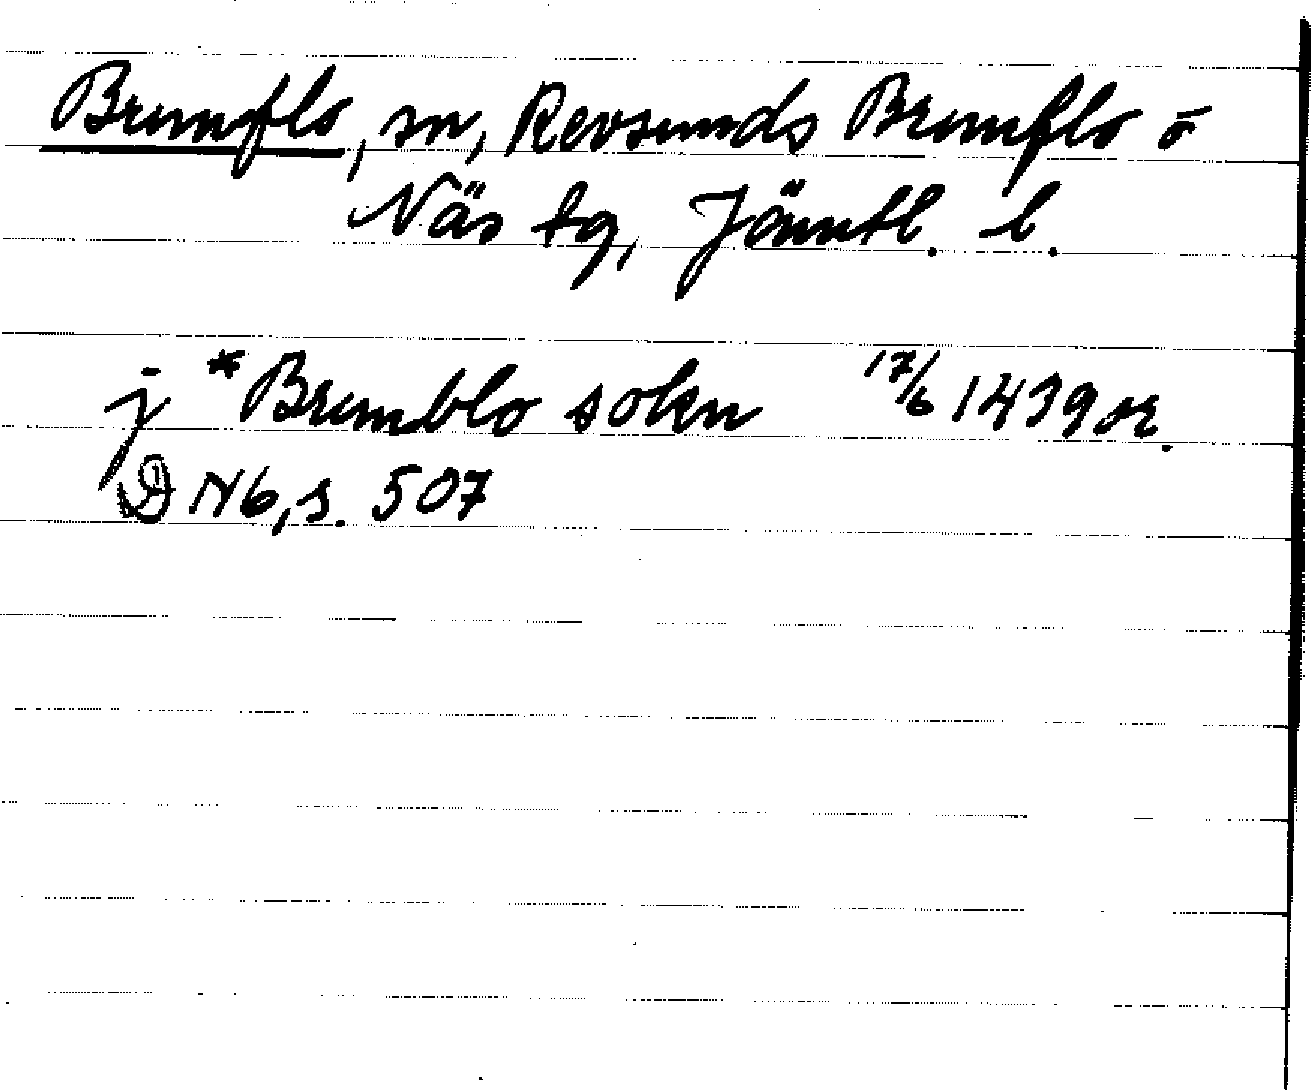 Brunflo, sn, Revsunds Brunflo o
Näs tg, Jämtl. l.
j *Brumblo sokn 17/6 1439 or.
DN 6, s. 507